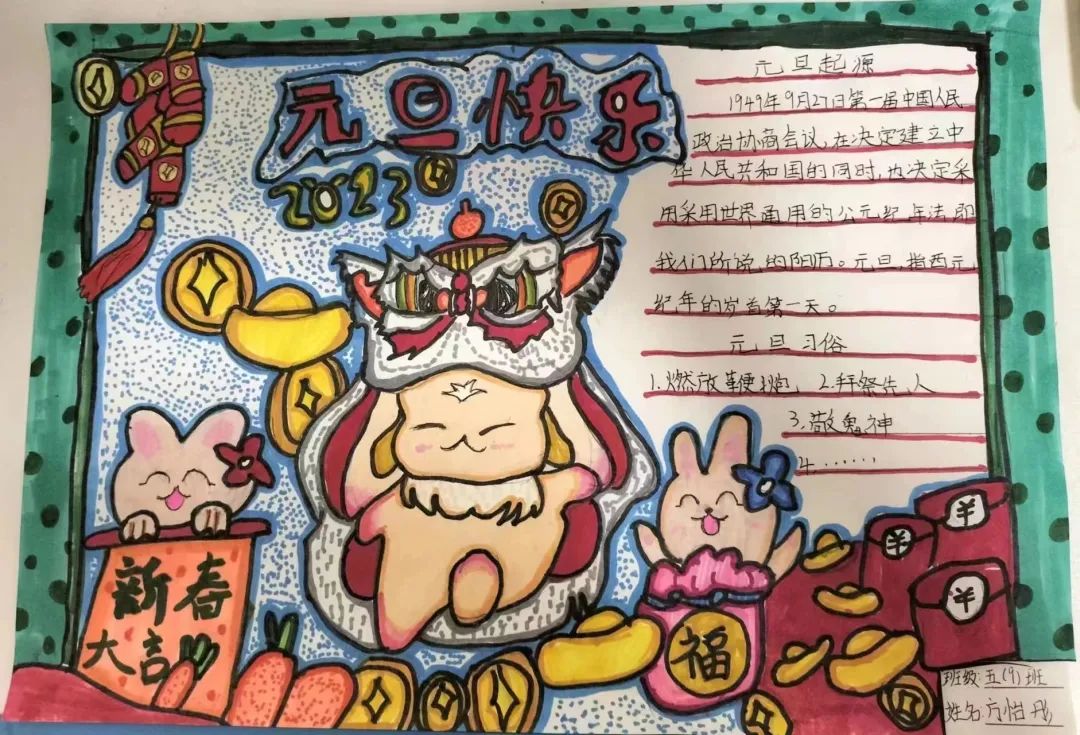 元旦快乐
2023
元旦起源
1949年9月27日第一届中国人民
政治协商会议,在决定建立中
华人民共和国的同时,也决定采
用采用世界通用的公元纪年法,即
我们所说的阳历。元旦,指西元
纪年的岁首第一天。
元旦习俗
1.燃放鞭炮、2.拜祭先人
3.敬鬼神
4.……
新春
大吉
福
¥
¥
¥
班级:五(9)班
姓名:方怡彤